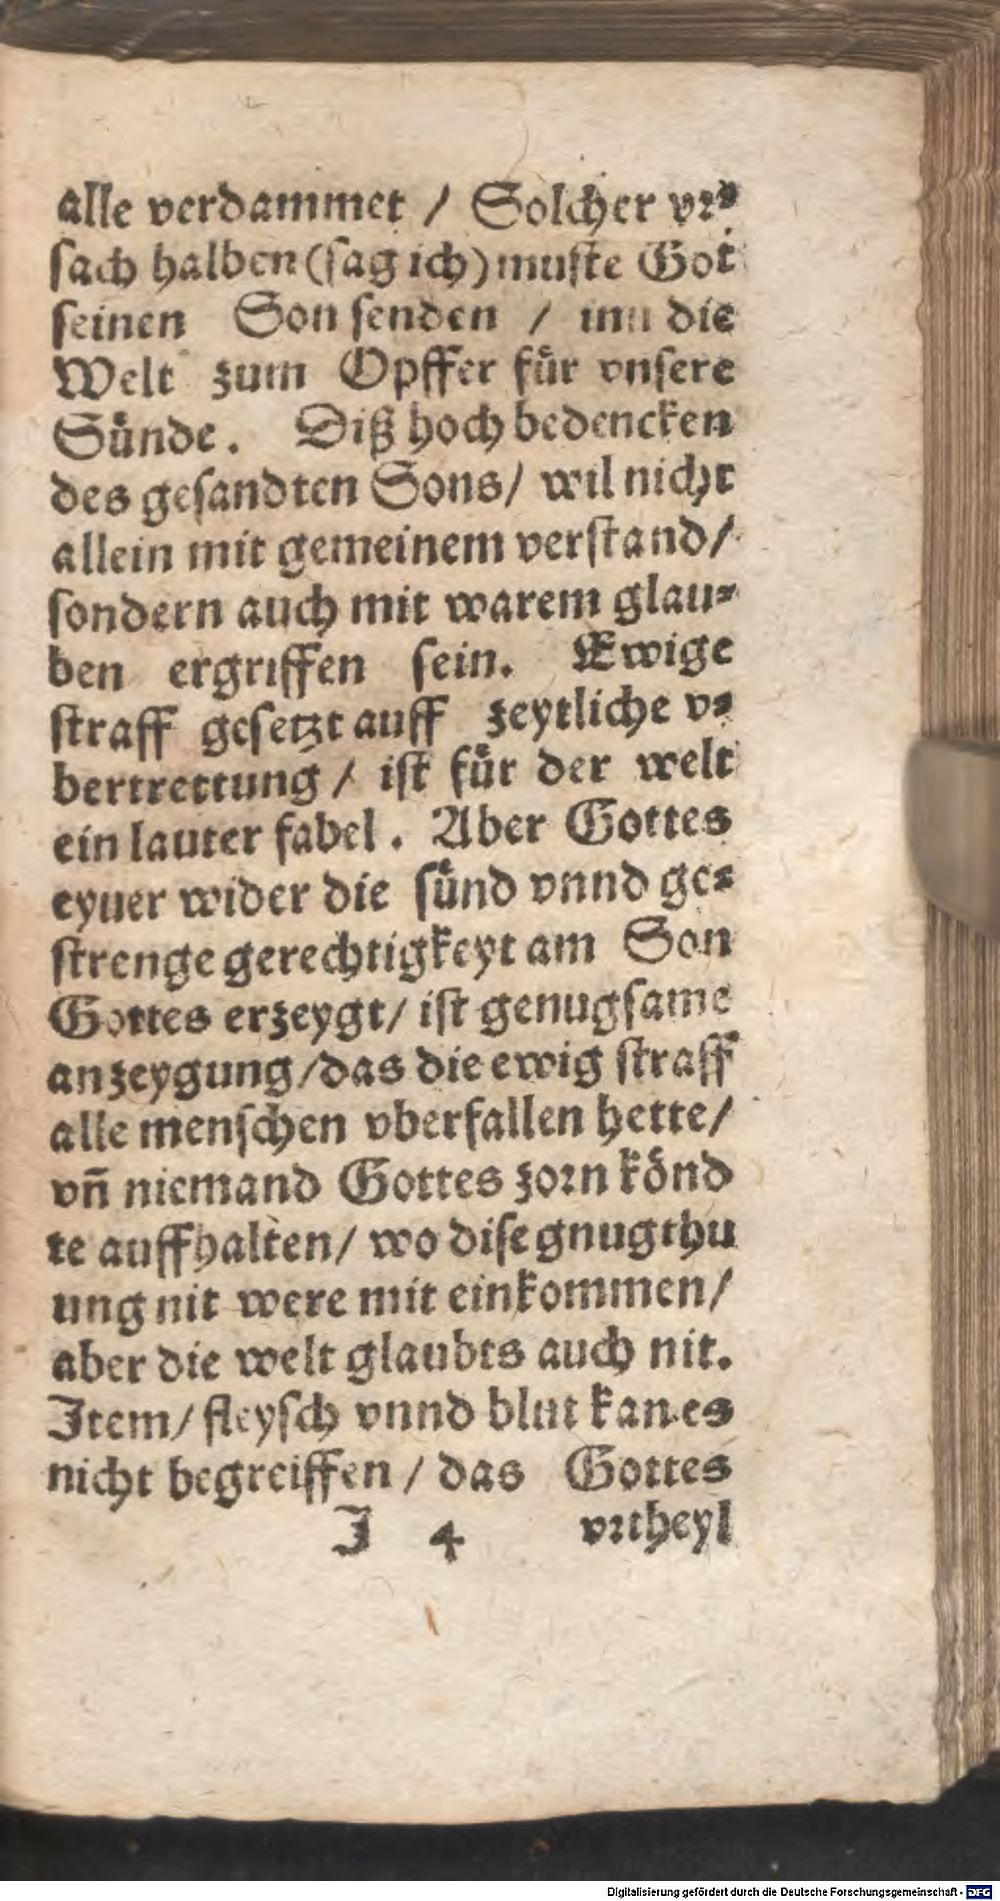 alle verdammet / Solcher vr⸗
sach halben (sag ich) muste Got
seinen Son senden / inn die
Welt zum Opffer fuͤr vnsere
Suͤnde. Diß hoch bedencken
des gesandten Sons/ wil nicht
allein mit gemeinem verstand/
sondern auch mit warem glau⸗
ben ergriffen sein. Ewige
straff gesetzt auff zeytliche v⸗
bertrettung / ist fuͤr der welt
ein lauter fabel. Aber Gottes
eyuer wider die suͤnd vnnd ge⸗
strenge gerechtigkeyt am Son
Gottes erzeygt/ ist genugsame
anzeygung/das die ewig straff
alle menschen vberfallen hette/
vn̄ niemand Gottes zorn koͤnd
te auffhalten/ wo dise gnugthu
ung nit were mit einkommen/
aber die welt glaubts auch nit.
Item/ fleysch vnnd blut kan es
nicht begreiffen / das Gottes
J 4 vrtheyl
Digitalisierung gefördert durch die Deutsche Forschungsgemeinschaft - DFG